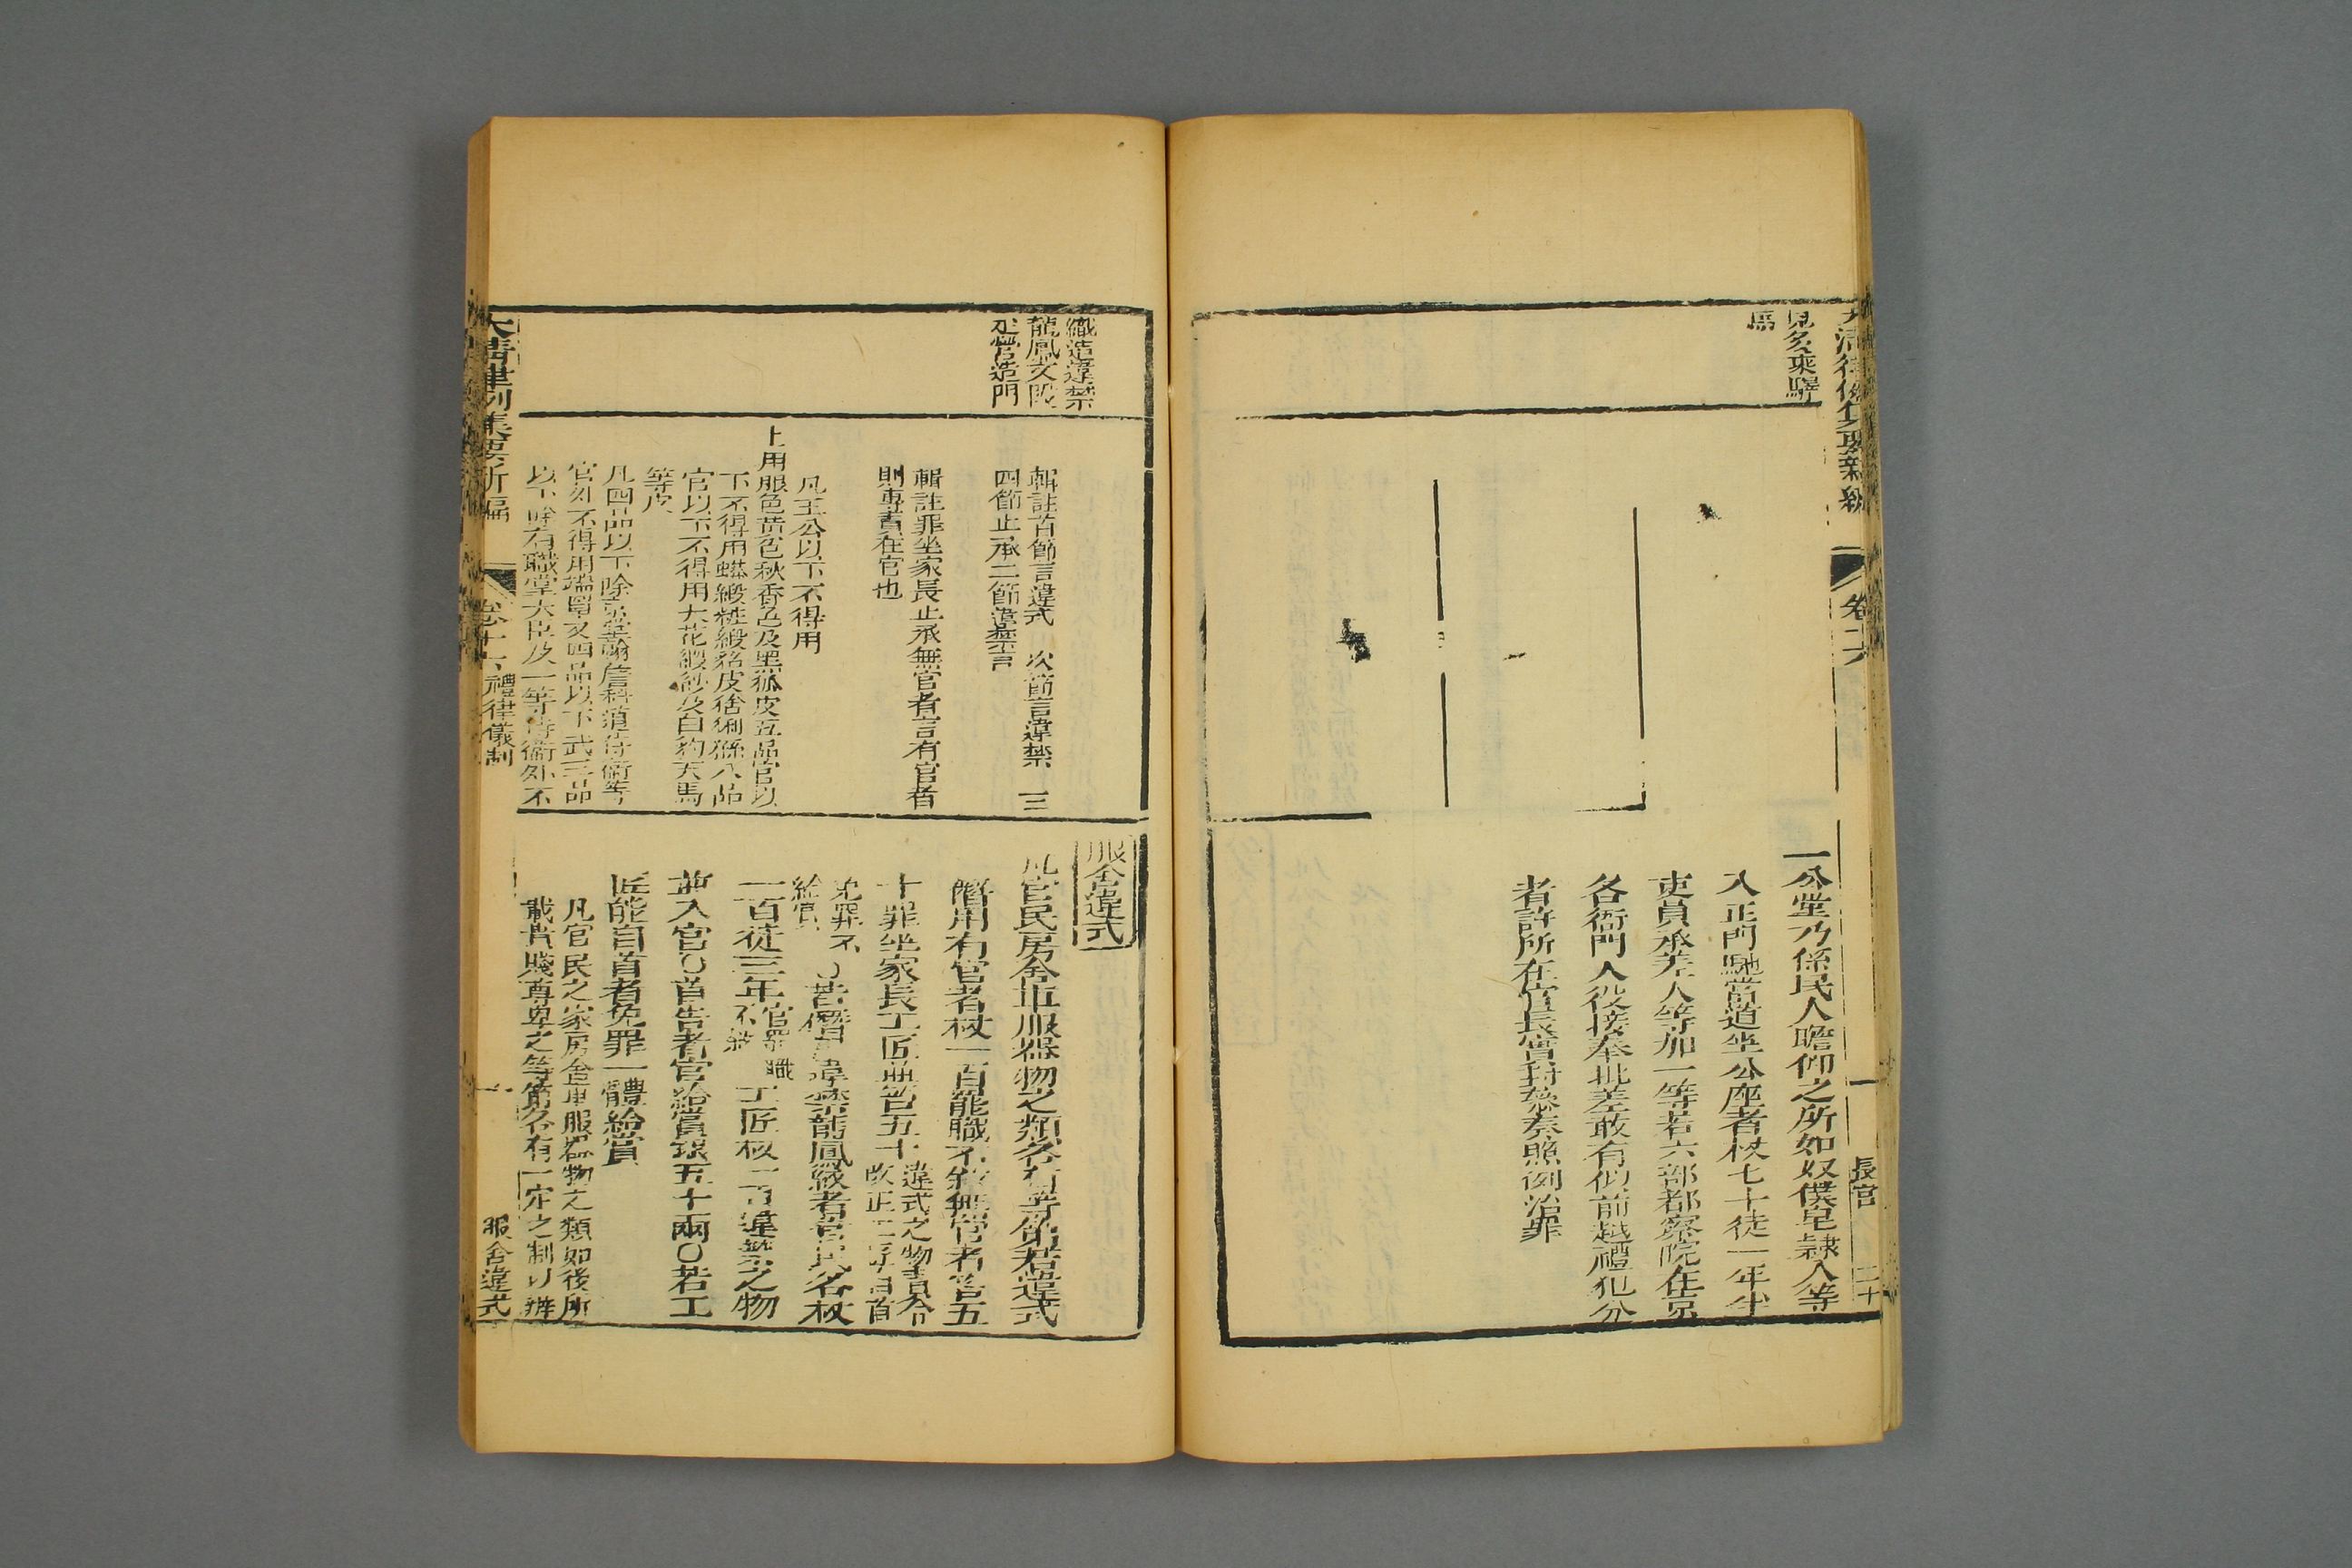 見多乘驛
馬
卷十六
長官
二十
一公堂乃係民人瞻仰之所如奴僕皂隸人等
入正門馳當道坐公座者杖七十徒一年半
吏員承差人等加一等若六部都察院在京
各衙門人役接奉批差敢有似前越禮犯分
者許所在官長實封參奏照例治罪
織造違禁
龍鳳文段
在營造門
輯註首節言違式 次節言違禁 三
四節止承二節違禁言
輯註罪坐家長止承無官者言有官者
則專責在官也
凡王公以下不得用
上用服色黃色秋香色及黑狐皮五品官以
下不得用蟒緞粧緞貂皮猞猁猻八品
官以下不得用大花緞紗及白豹天馬
等皮
凡四品以下除京堂翰詹科道侍衛等
官外不得用端罩又四品以下武三品
以下除有職掌大臣及一等侍衛外不
服舍違式
凡官民房舍車服器物之類各有等第若違式
僭用有官者杖一百罷職不敘無官者笞五
十罪坐家長工匠並笞五十違式之物責令
改正工匠自首
免罪不
給賞○若僭用違禁龍鳳紋者官民各杖
一百徒三年官罷職
不敘工匠杖一百違禁之物
並入官○首告者官給賞銀五十兩○若工
匠能自首者免罪一體給賞
凡官民之家房舍車服器物之類如後所
載貴賤尊卑之等第各有一定之制以辨
大清律例集要新編
禮律儀制
服舍違式